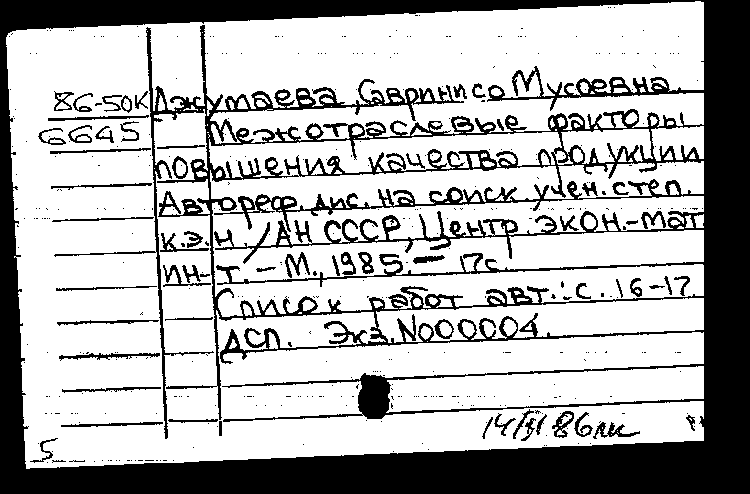 86-50К Джумаева, Савринисо Мусоевна.
6645 Межотраслевые факторы
повышения качества продукции
Автореф. дис. на соиск. учен. степ.
к.э.н. /АН СССР, Центр. экон.-мат.
ин-т. – М., 1985. – 17с.
Список работ авт.: с. 16-17.
ДСП. Экз. N000004.
86
5